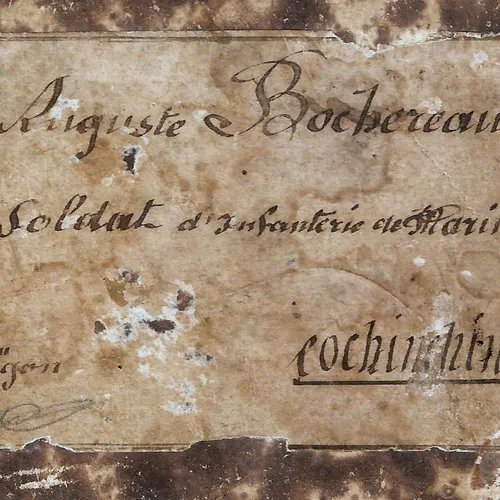 Auguste Bochereau
Soldat d'Infanterie de Marin
ïgon
cochinchin